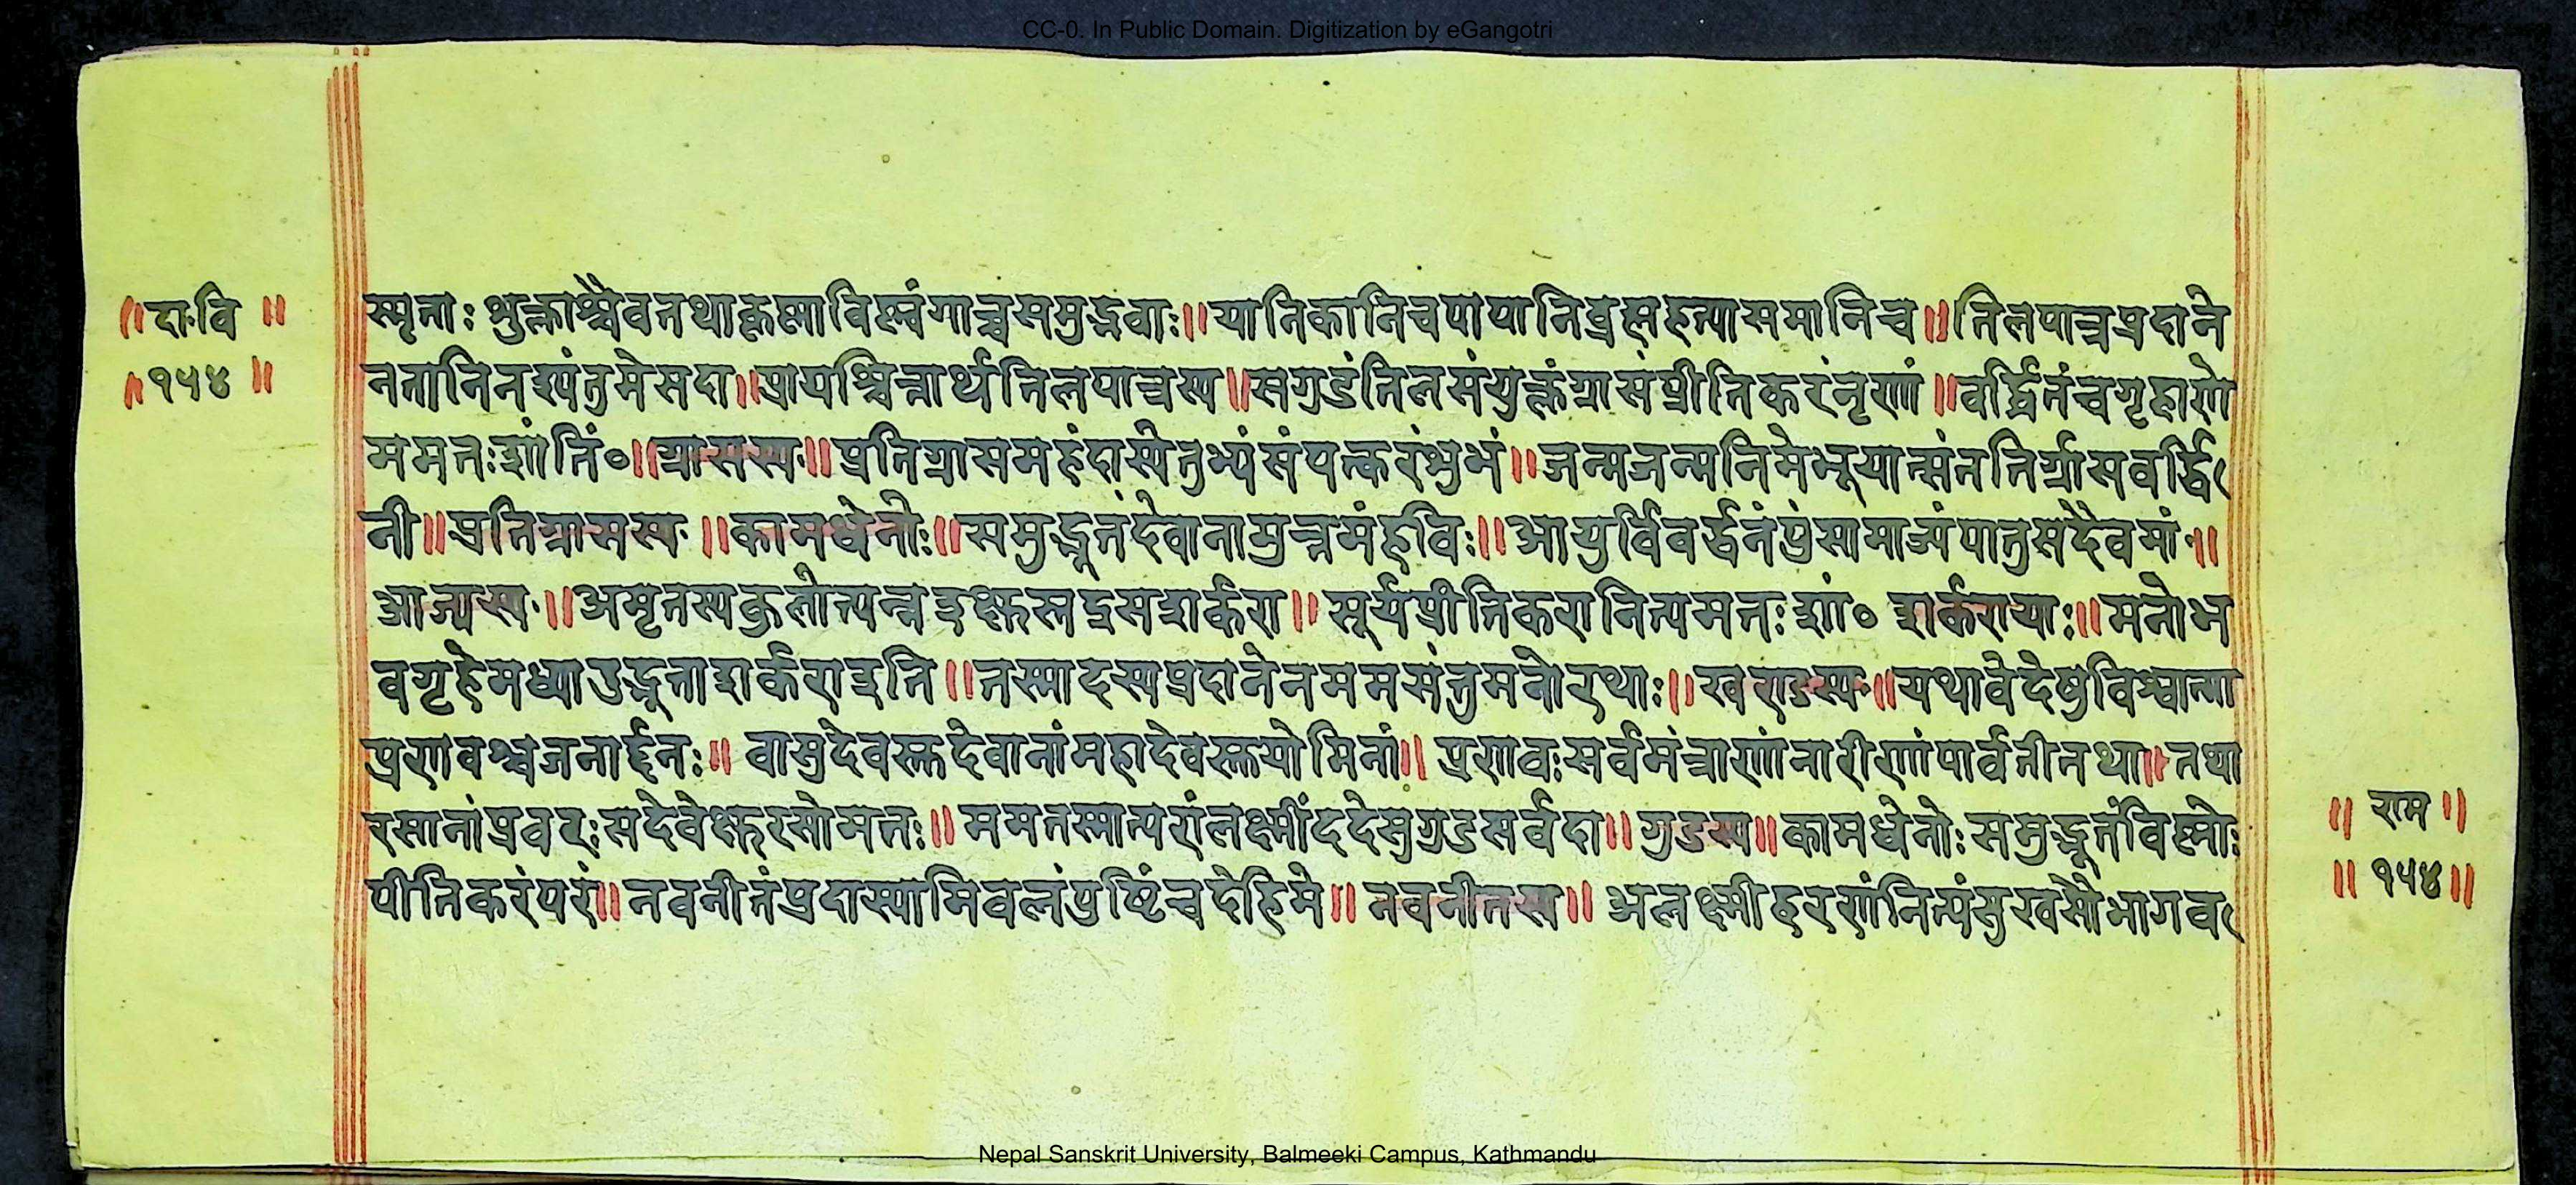 CC-0. In Public Domain. Digitization by eGangotri
॥दा·वि ॥
॥१५४ ॥
स्मृताः शुक्लाश्चैवतथाकृष्णाविष्णुंगात्रसमुद्भवाः॥यानिकानिचपापानिब्रह्महत्यासमानिच॥तिलपात्रप्रदाने
नतानिनश्यंतुमेसदा॥प्रायश्चित्तार्थंतिलपात्रस्य॥सगुडंतिलसंयुक्तंग्रासंप्रीतिकरंनृणां॥वर्द्धितंचगृहाणे
ममतःशांतिं०॥ग्रासस्य·॥प्रतिग्रासमहंदास्येतुभ्यंसंपत्करंशुभं॥जन्मजन्मनिमेभूयात्संततिर्ग्रासवर्द्धि
नी॥प्रतिग्रासस्य·॥कामधेनोः॥समुद्भूतंदेवानामुत्तमंहविः॥आयुर्विवर्द्धनंपुंसामाज्यंपातुसदैवमां॥
आज्यस्य·॥अमृतस्यकुलोत्पन्नइक्षुरूद्रसशर्करा॥सूर्यप्रीतिकरानित्यमतःशां० शर्करायाः॥मनोभ
वगृहेमध्याउद्भूताशर्कराइति॥तस्मादस्यप्रदानेनममसंतुमनोरथाः॥खण्डस्य·॥यथावेदेषुविश्वात्मा
प्रणवश्चजनार्द्दनः॥ वासुदेवस्तुदेवानांमहादेवस्तुयोगिनां॥ प्रणवःसर्वमंत्राणांनारीणांपार्वतीतथा॥तथा
रसानांप्रवरःसदेवेक्षुरसोमतः॥ ममतस्मात्परांलक्ष्मींददेसुगुडसर्वदा॥गुडस्य॥कामधेनोःसमुद्भूतंविष्णोः
पीतिकरंपरं॥नवनीतंप्रदास्यामिवलंपुष्टिंचदेहिमे॥ नवनीतस्य॥ अलक्ष्मीहरणंनित्यंसुखसौभागव
॥ राम ॥
॥ १५४॥
Nepal Sanskrit University, Balmeeki Campus, Kathmandu